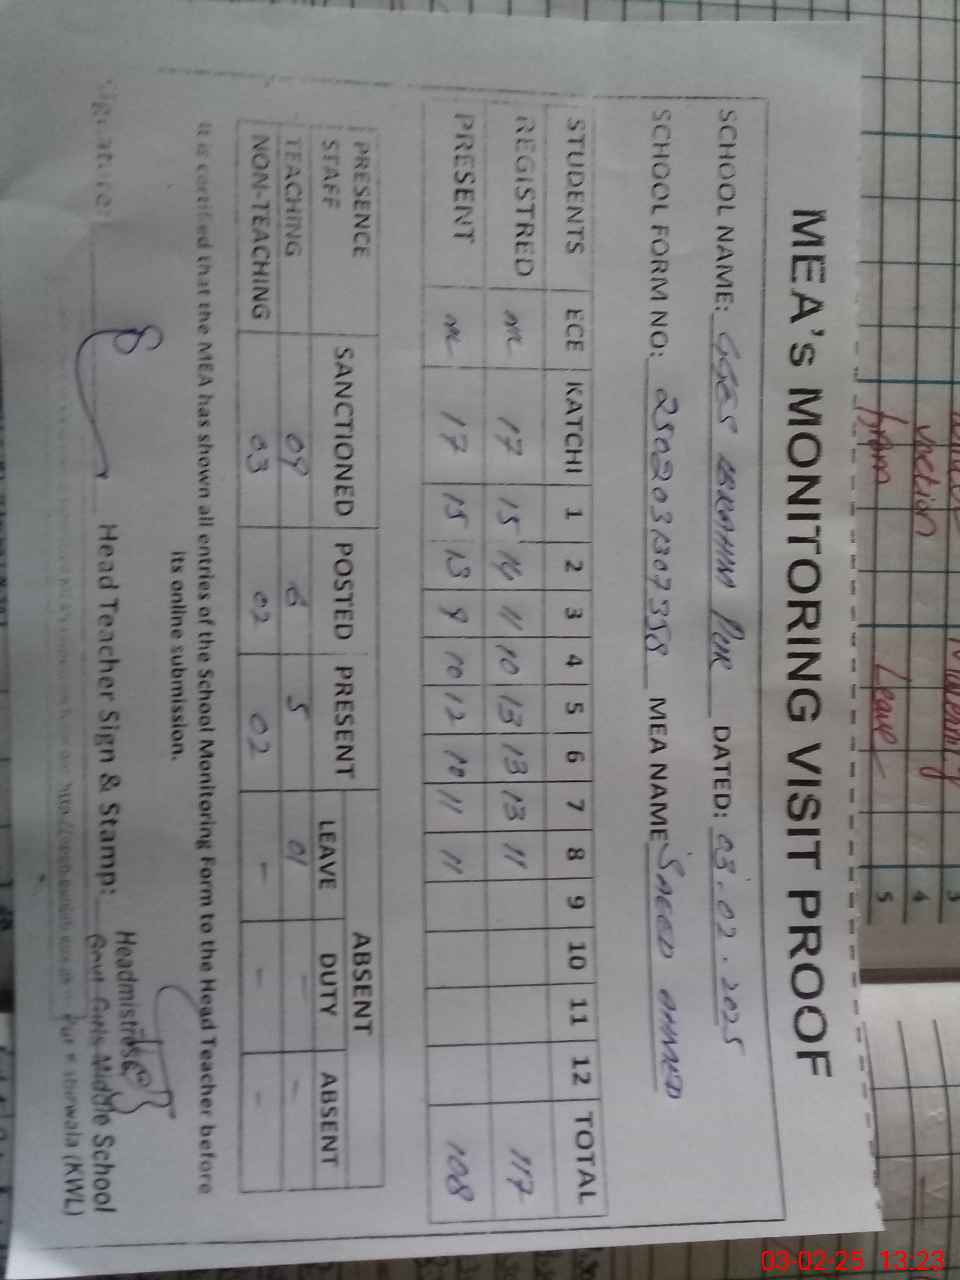 MEA's MONITORING VISIT PROOF
SCHOOL NAME: GGES IBRAHIM PUR DATED: 03.02.2025
SCHOOL FORM NO: MEA NAME SAEED AHMED
STUDENTS ECE KATCHI 1 2 3 4 5 6 7 8 9 10 11 12 TOTAL
REGISTRED 17 15 14 11 10 13 13 13 11 117
PRESENT 17 15 13 9 10 12 10 11 11 108
PRESENCE SANCTIONED POSTED PRESENT ABSENT
STAFF LEAVE DUTY ABSENT
TEACHING 09 6 5 01 - -
NON-TEACHING 03 02 02 - - -
It is certified that the MEA has shown all entries of the School Monitoring Form to the Head Teacher before
its online submission.
Signature: Head Teacher Sign & Stamp:
Headmistress
Govt Girls Middle School
(KWL)
from Leave
5
4
3
03-02-25 13:23